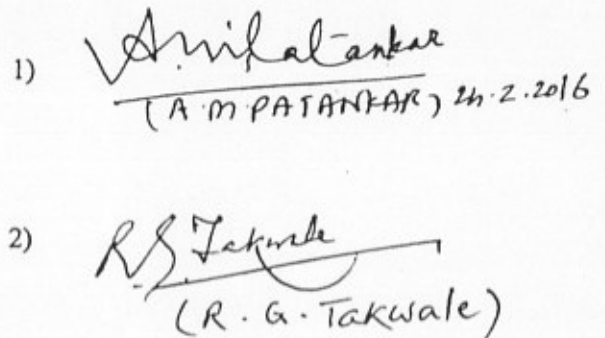 1) Amilatankar
(A.M PATANKAR) 24.2.2016
2) R.G. Takwale
(R. G. Takwale)